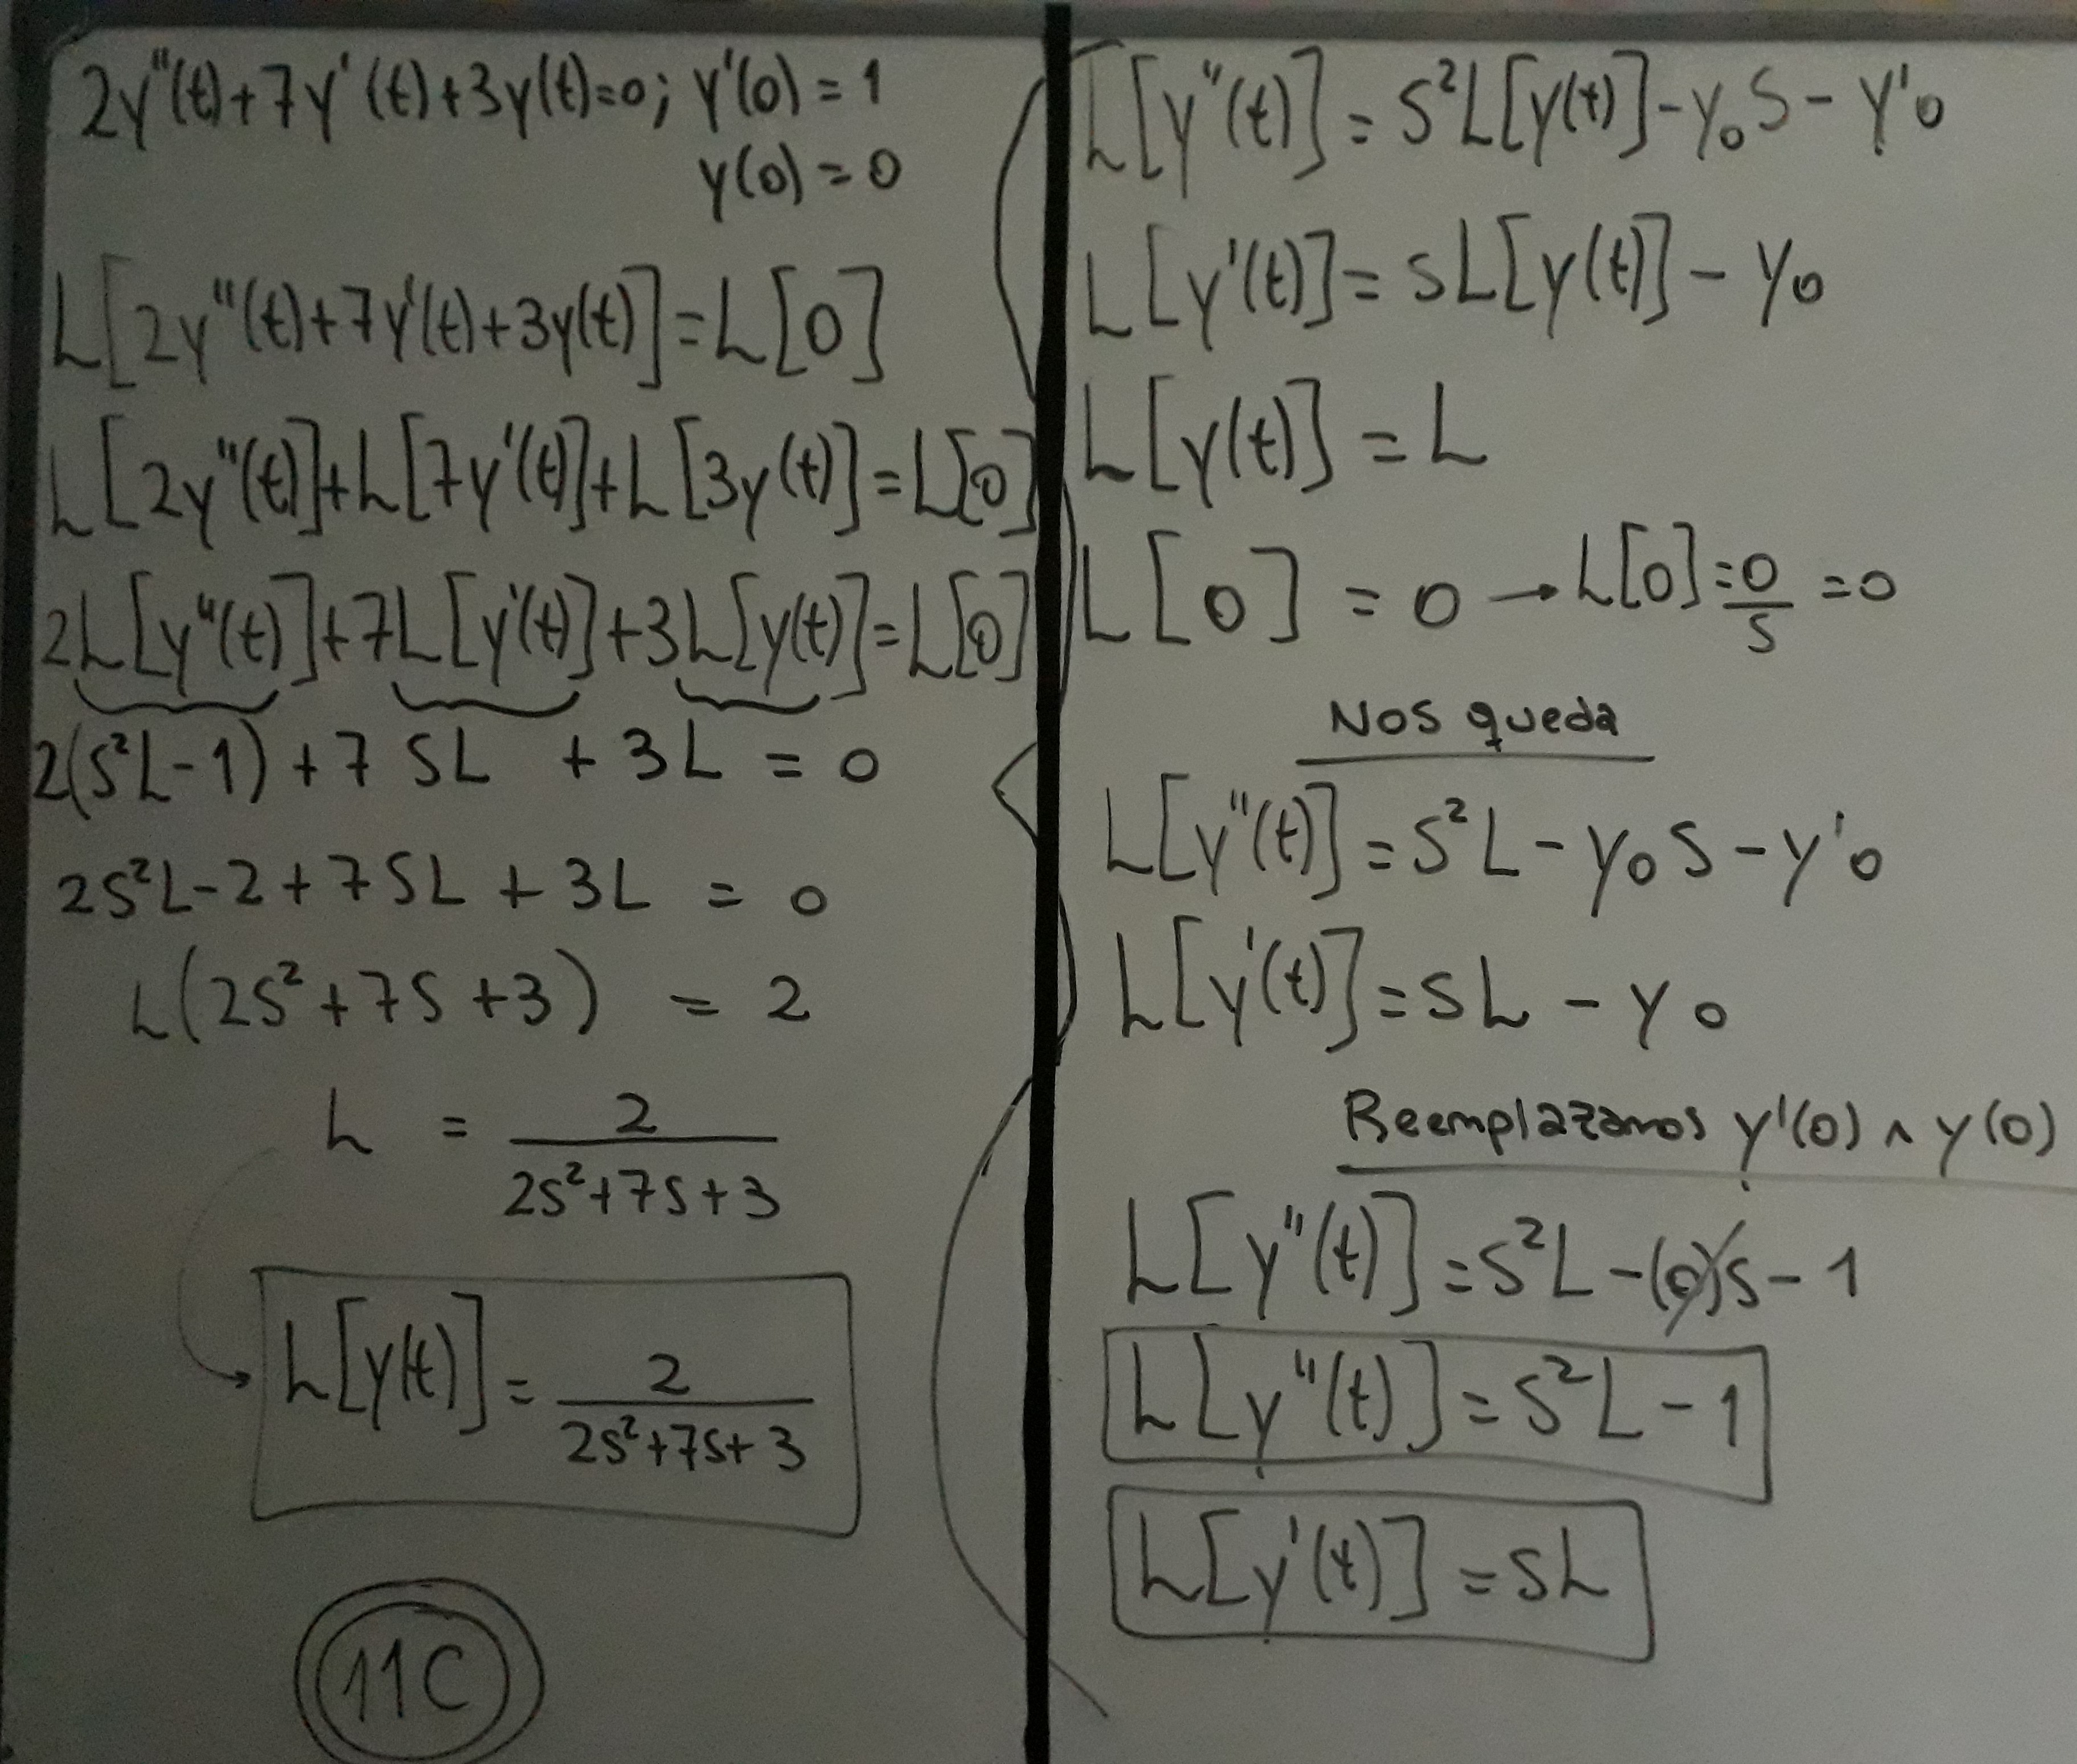 2y''(t)+7y'(t)+3y(t)=0; y'(0)=1
y(0)=0
L[2y''(t)+7y'(t)+3y(t)]=L[0]
L[2y''(t)]+L[7y'(t)]+L[3y(t)]=L[0]
2L[y''(t)]+7L[y'(t)]+3L[y(t)]=L[0]
2(S²L-1)+7 SL + 3L = 0
2S²L-2+7SL+3L = 0
L(2S²+7S+3) = 2
L = 2
2S²+7S+3
L[y(t)] = 2
2S²+7S+3
11C
L[y''(t)]=S²L[y(t)]-y₀S-y'₀
L[y'(t)]=SL[y(t)]-y₀
L[y(t)]=L
L[0]=0→L[0]=0/S=0
Nos queda
L[y''(t)]=S²L-y₀S-y'₀
L[y'(t)]=SL-y₀
Reemplazamos y'(0)∧y(0)
L[y''(t)]=S²L-(0)S-1
L[y''(t)]=S²L-1
L[y'(t)]=SL